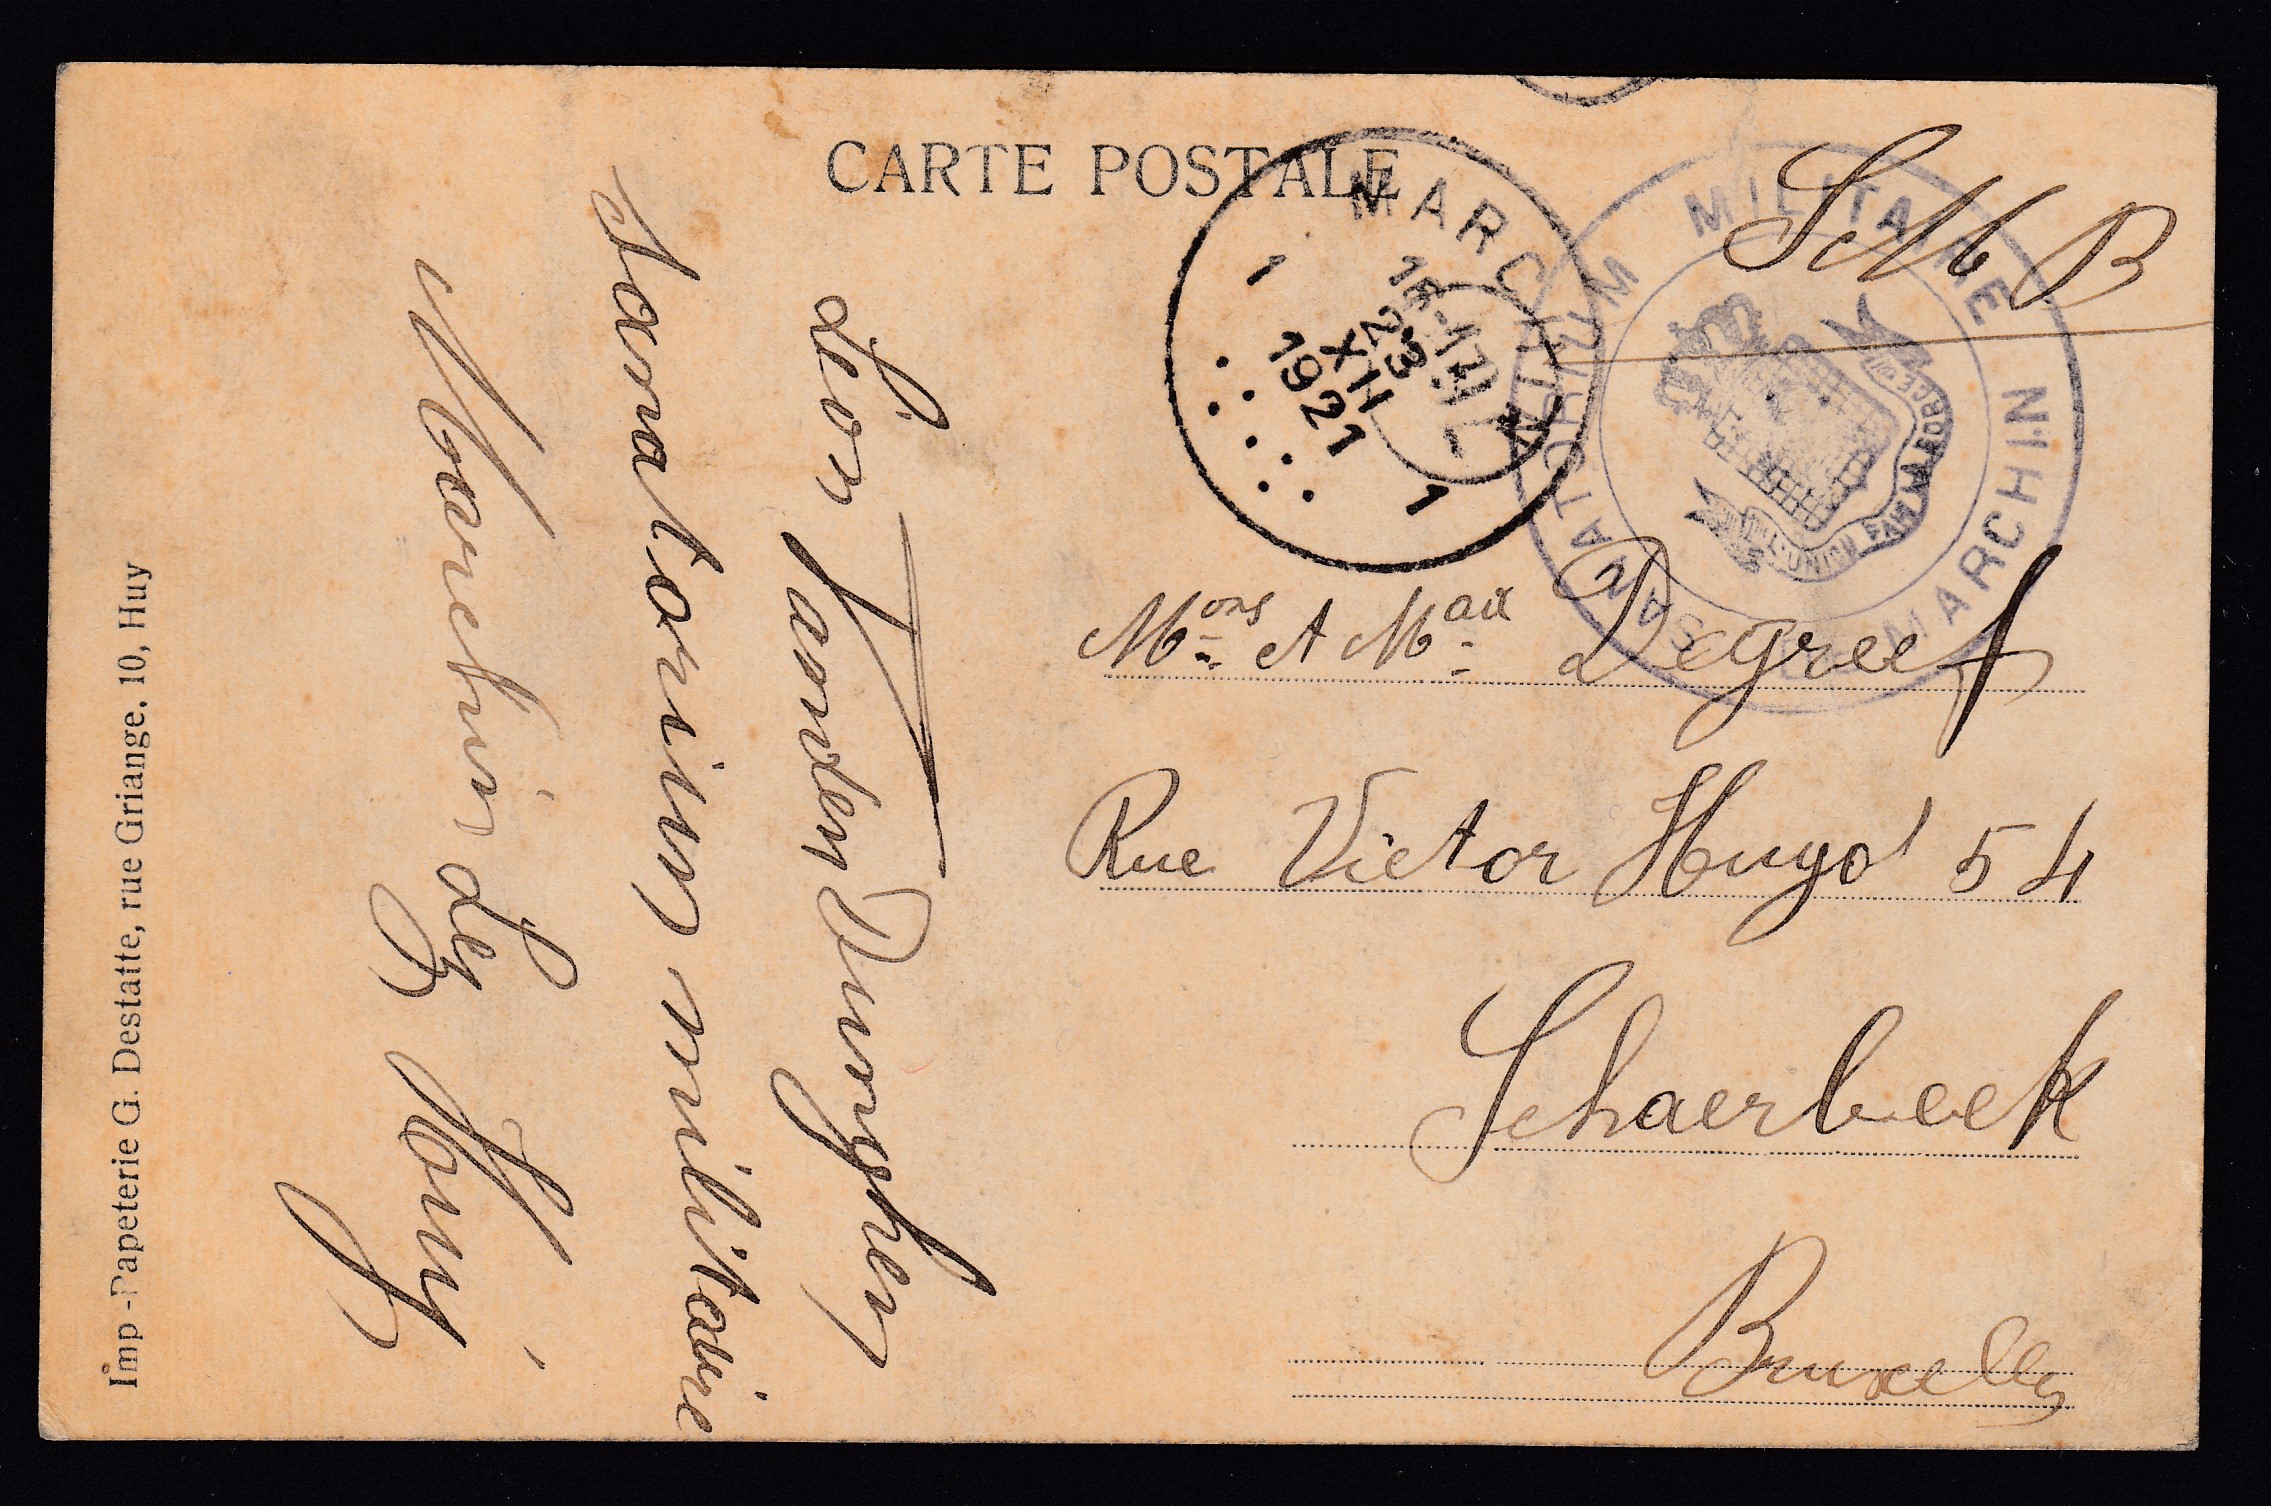 CARTE POSTALE
SM B
MARCHIN
1 1
16-17
23
XII
1921
SANATORIUM MILITAIRE
MARCHIN
L'UNION FAIT LA FORCE
Mons et Mad Degreef
Rue Victor Hugo 54
Schaerbeek
Bruxelles
Léon
Sanatorium militaire
Marchin lez Huy
Imp-Papeterie G. Destatte, rue Griange. 10, Huy